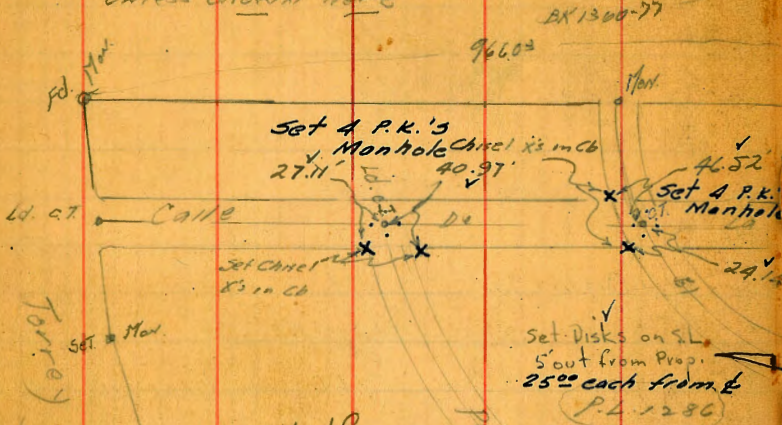 BK 1300-77
966.03
Fd. Mon.
Mon.
Set 4 P.K.'s
Manhole
Chisel X's in Cb
27.11'
40.97'
46.52'
Ld. & T.
Set 4 P.K.
Manhole
Ld. & T.
Calle
De
24.14
Set Chisel
X's in Cb
Torrey
Set Mon.
Set Disks on S.L.
5' out from Prop.
25.00 each from ℄
(P.L. 1286)